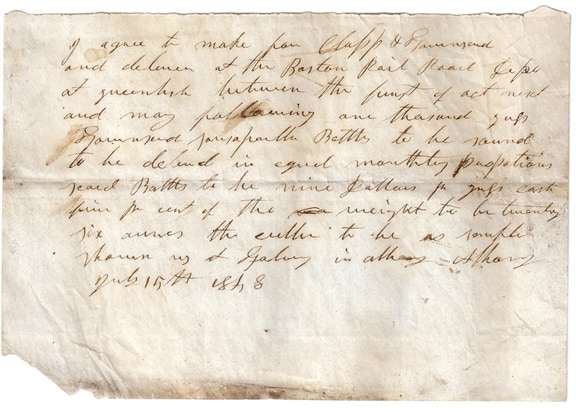 I agree to make for Clapp & Townsend
and deliver at the Boston Rail Road Depo
at greenbush between the first of oct next
and may following one thousand
Townsend sarsaparilla Bottles to be round
to be deliverd in equal monthly
said Bottles to be nine Dollars pr cash
five pr cent of the weight to be twenty
six ounces the culler to be as sample
shown us at in albany Albany
July 15th 1848